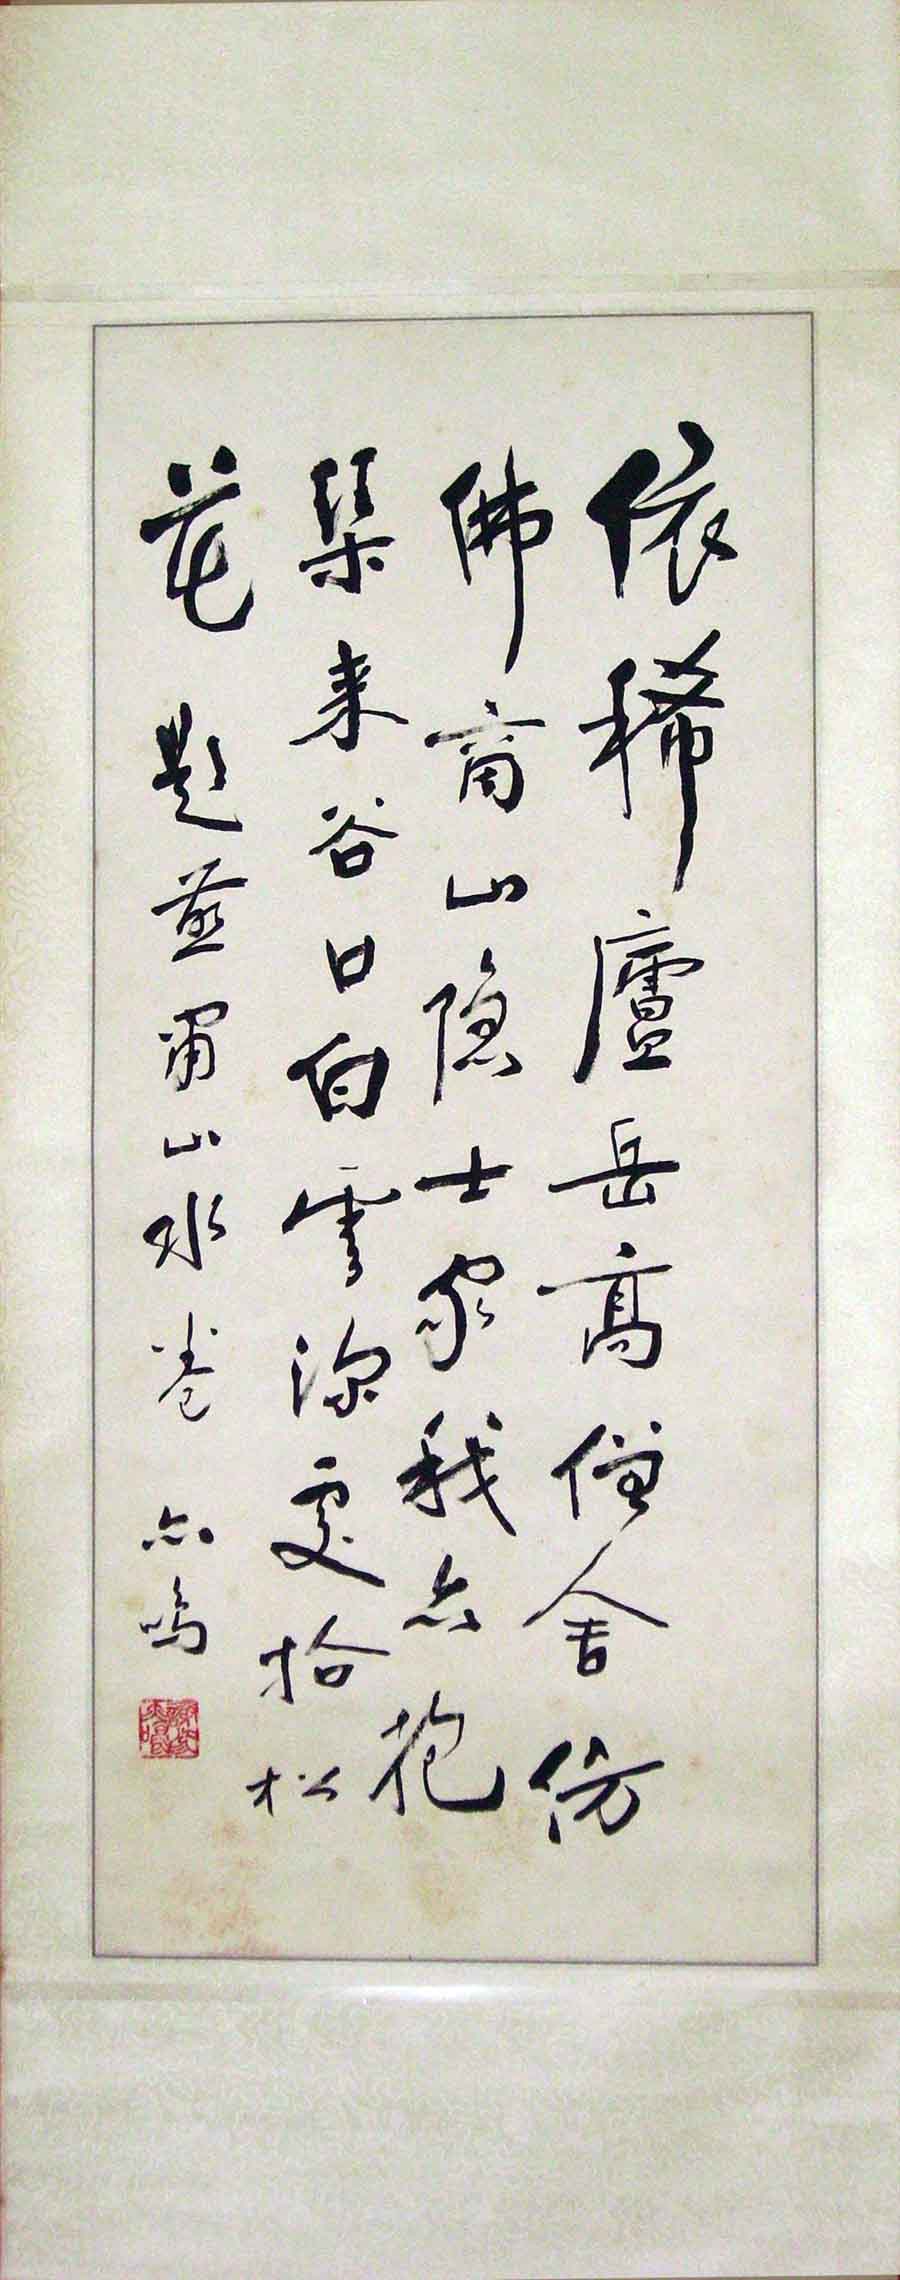 依稀廬岳高僧舍仿
佛商山隱士家我亦抱
琴来谷口白雲深處拾松
花 題燕肅山水卷 亦鳴